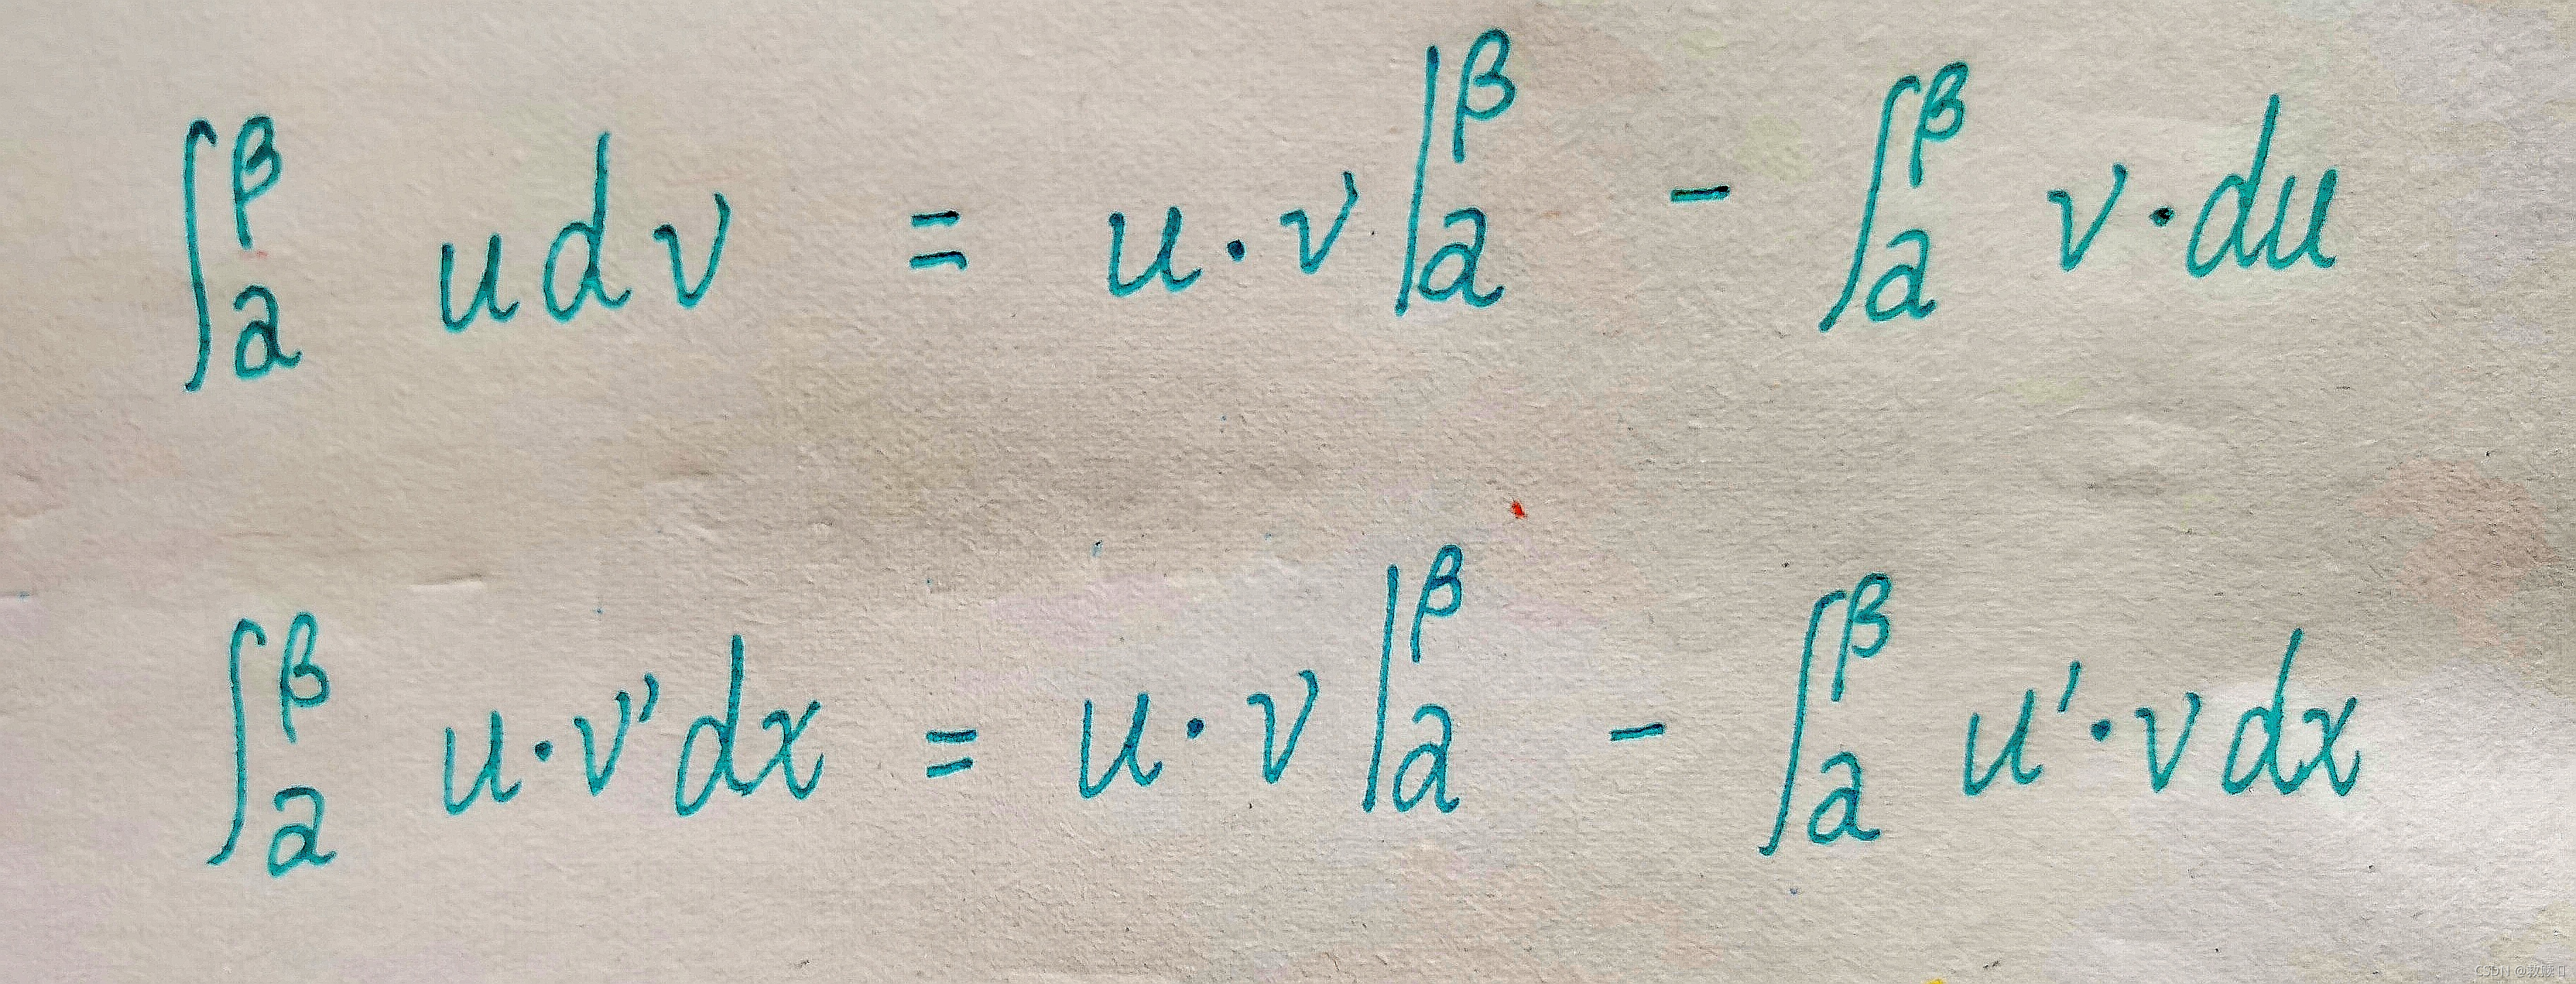 ∫_a^β u d v = u · v |_a^β - ∫_a^β v · du
∫_a^β u · v' dx = u · v |_a^β - ∫_a^β u' · v dx